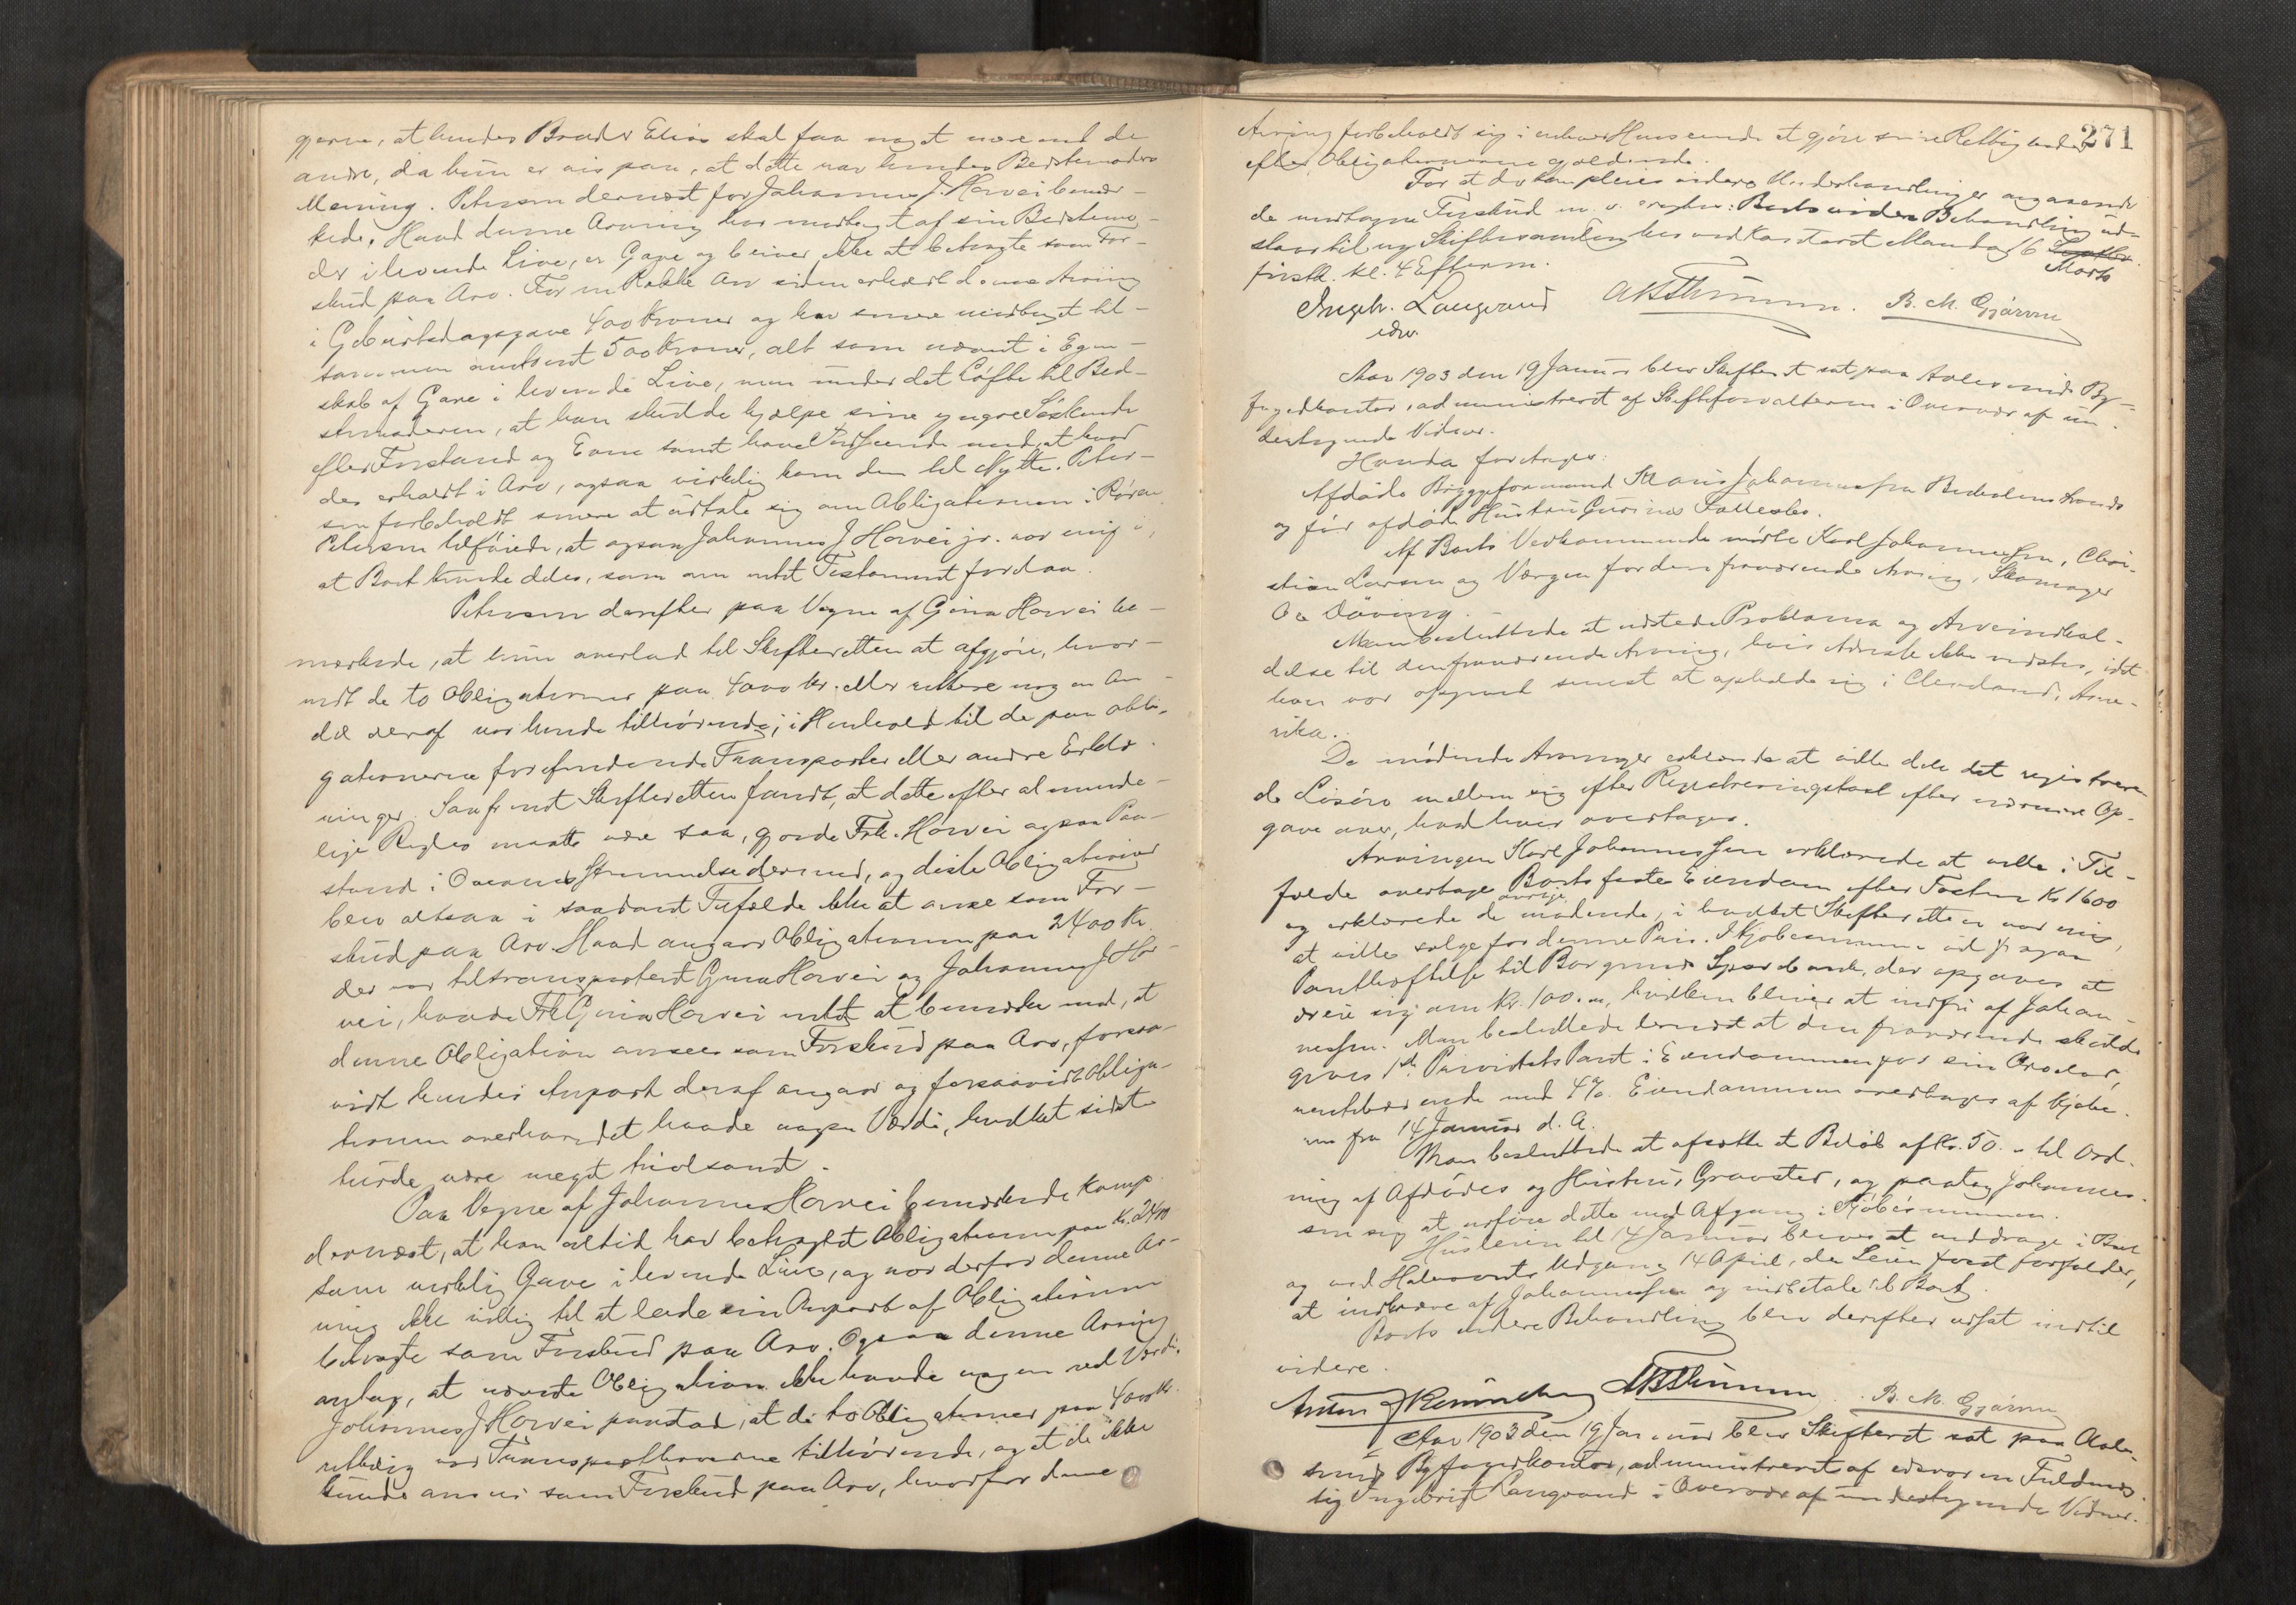 gjerne, at hendes Broder Elias skal faa noget mere end de
andre, da hun er vis paa, at dette var hendes Bedstemoders
Mening. Petersen dernæst for Johannes J. Horvei bemær-
kede. Hvad denne Arving har modtaget af sin Bedstemo-
der i levende Live, er Gave og bliver ikke at betragte som For-
skud paa Arv. For en Række Aar siden erholdt denne Arving
i Geburtsdagsgave 400 Kroner og har senere modtaget til-
sammen omtrent 500 Kroner, alt som nævnt i Egen-
skab af Gave i levende Live, men under det Løfte til Bed-
stemoderen, at han skulde hjælpe sine yngre Søskende
efter Forstand og Evne samt have Indseende med, at hvad
der erholdt i Arv, ogsaa virkelig kom dem til Nytte. Peter-
sen forbeholdt senere at udtale sig om Obligationen i
Petersen tilføiede, at ogsaa Johannes J Horvei jr. var enig i,
at Boet kunde deles, som om intet Testament forelaa.
Petersen derefter paa Vegne af Gina Horvei be-
mærkede, at hun overlod til Skifteretten at afgjøre, hvor-
vidt de to Obligationer paa 4000 Kr. eller rettere nogen An-
del deraf var hende tilhørende, i Henhold til de paa Obli-
gationerne forefindende Transporter eller andre Erklæ-
ringer. Saafremt Skifteretten fandt, at dette efter alminde-
lige Regler maatte være saa, gjorde Frk. Horvei ogsaa Paa-
stand i Overensstemmelse dermed, og disse Obligationer
blev altsaa i saadant Tilfælde ikke at anse som For-
skud paa Arv. Hvad angaar Obligationen paa 2400 Kr.
der var tiltransporteret Gina Horvei og Johannes J Hor-
vei, havde Frk Gina Horvei intet at bemærke ved, at
denne Obligation ansees som Forskud paa Arv, forsaa-
vidt hendes Anpart deraf angaar og forsaavidt Obliga-
tionen overhovedet havde nogen Værdi, hvilket sidste
turde være meget tvivlsomt.
Paa Vegne af Johannes Horvei bemærkede Komp.
dernæst, at han altid har betragtet Obligationen paa Kr. 2400
som virkelig Gave i levende Live, og var derfor denne Ar-
ving ikke villig til at lade sin Anpart af Obligationen
betragte som Forskud paa Arv. Ogsaa denne Arving
antog, at nævnte Obligation ikke havde nogen reel Værdi.
Johannes J Horvei paastod, at de to Obligationer paa 4000 Kr.
retslig var Transporthaverne tilhørende, og at de ikke
kunde ansees som Forskud paa Arv, hvorfor denne
271
Arving forbeholdt sig i enhver Henseende at gjøre sine Rettigheder
efter Obligationerne gjældende.
For at der kan pleies videre Underhandlinger angaaende
de modtagne Forskud m. v. Boets videre Behandling ud-
til ny Skiftesamling her ved Kontoret Mandag 16
Marts
førstk. kl. 4 Efterm.
Ingebr. Langvand
edsv.
B. M. Gjærum
Aar 1903 den 19 Januar blev Skifteret sat paa Aalesunds By-
fogedkontor, administreret af Skifteforvalteren i Overvær af un-
dertegnede Vidner.
Hvorda foretages:
Afdøde Bryggeformand Johannessen
og før afdøde Hustru Fællesbo.
Af Boets Vedkommende mødte Karl Johannessen, Chri-
stian Larsen og Værgen for den fraværende Arving, Skomager
Ole Døving.
Man besluttede at udstede Proklama og Arveindkal-
delse til den fraværende Arving, hvis Adresse ikke vidstes, idet
han var opgivet senest at opholde sig i Cleveland, Ame-
rika.
De mødende Arvinger erklærede at ville dele det registrere-
de Løsøre mellem sig efter Registreringstaxt efter nærmere Op-
gave over, hvad hver overtager.
Arvingen Karl Johannessen erklærede at ville i Til-
fælde overtage Boets faste Eiendom efter Taxten Kr 1600
og erklærede de øvrige mødende, i hvilket Skifteretten var enig,
at ville sælge for denne Pris. I Kjøbesummen udgaar
Pantheftelse til Borgund Sparebank, der opgaves at
dreie sig om Kr. 100.00, hvilken bliver at indfri af Johan-
nessen. Man besluttede dernæst at den fraværende skulde
gives 1ste Prioritets Pant i Eiendommen for sin Arvelod,
rentebærende med 4%. Eiendommen overtages af Kjøbe-
ren fra 14 Januar d. A.
Man besluttede at afsætte et Beløb af Kr. 50.- til Ord-
ning af Afdødes og Hustrus Gravsted, og paatog Johannes-
sen sig at udføre dette mod Afgang i Kjøbesummen.
Husleien til 14 Januar bliver at inddrage i Boet
og ved Halvaarets Udgang 14 April, da Leien først forfalder,
at indkræve af Johannessen og indbetale til Boet.
Boets videre Behandling blev derefter udsat indtil
videre.
B. M. Gjærum
Aar 1903 den 19 Januar blev Skifteret sat paa Aale-
sunds Byfogedkontor, administreret af edsvoren Fuldmæg-
tig Ingebrigt Langvand i Overvær af undertegnede Vidner.